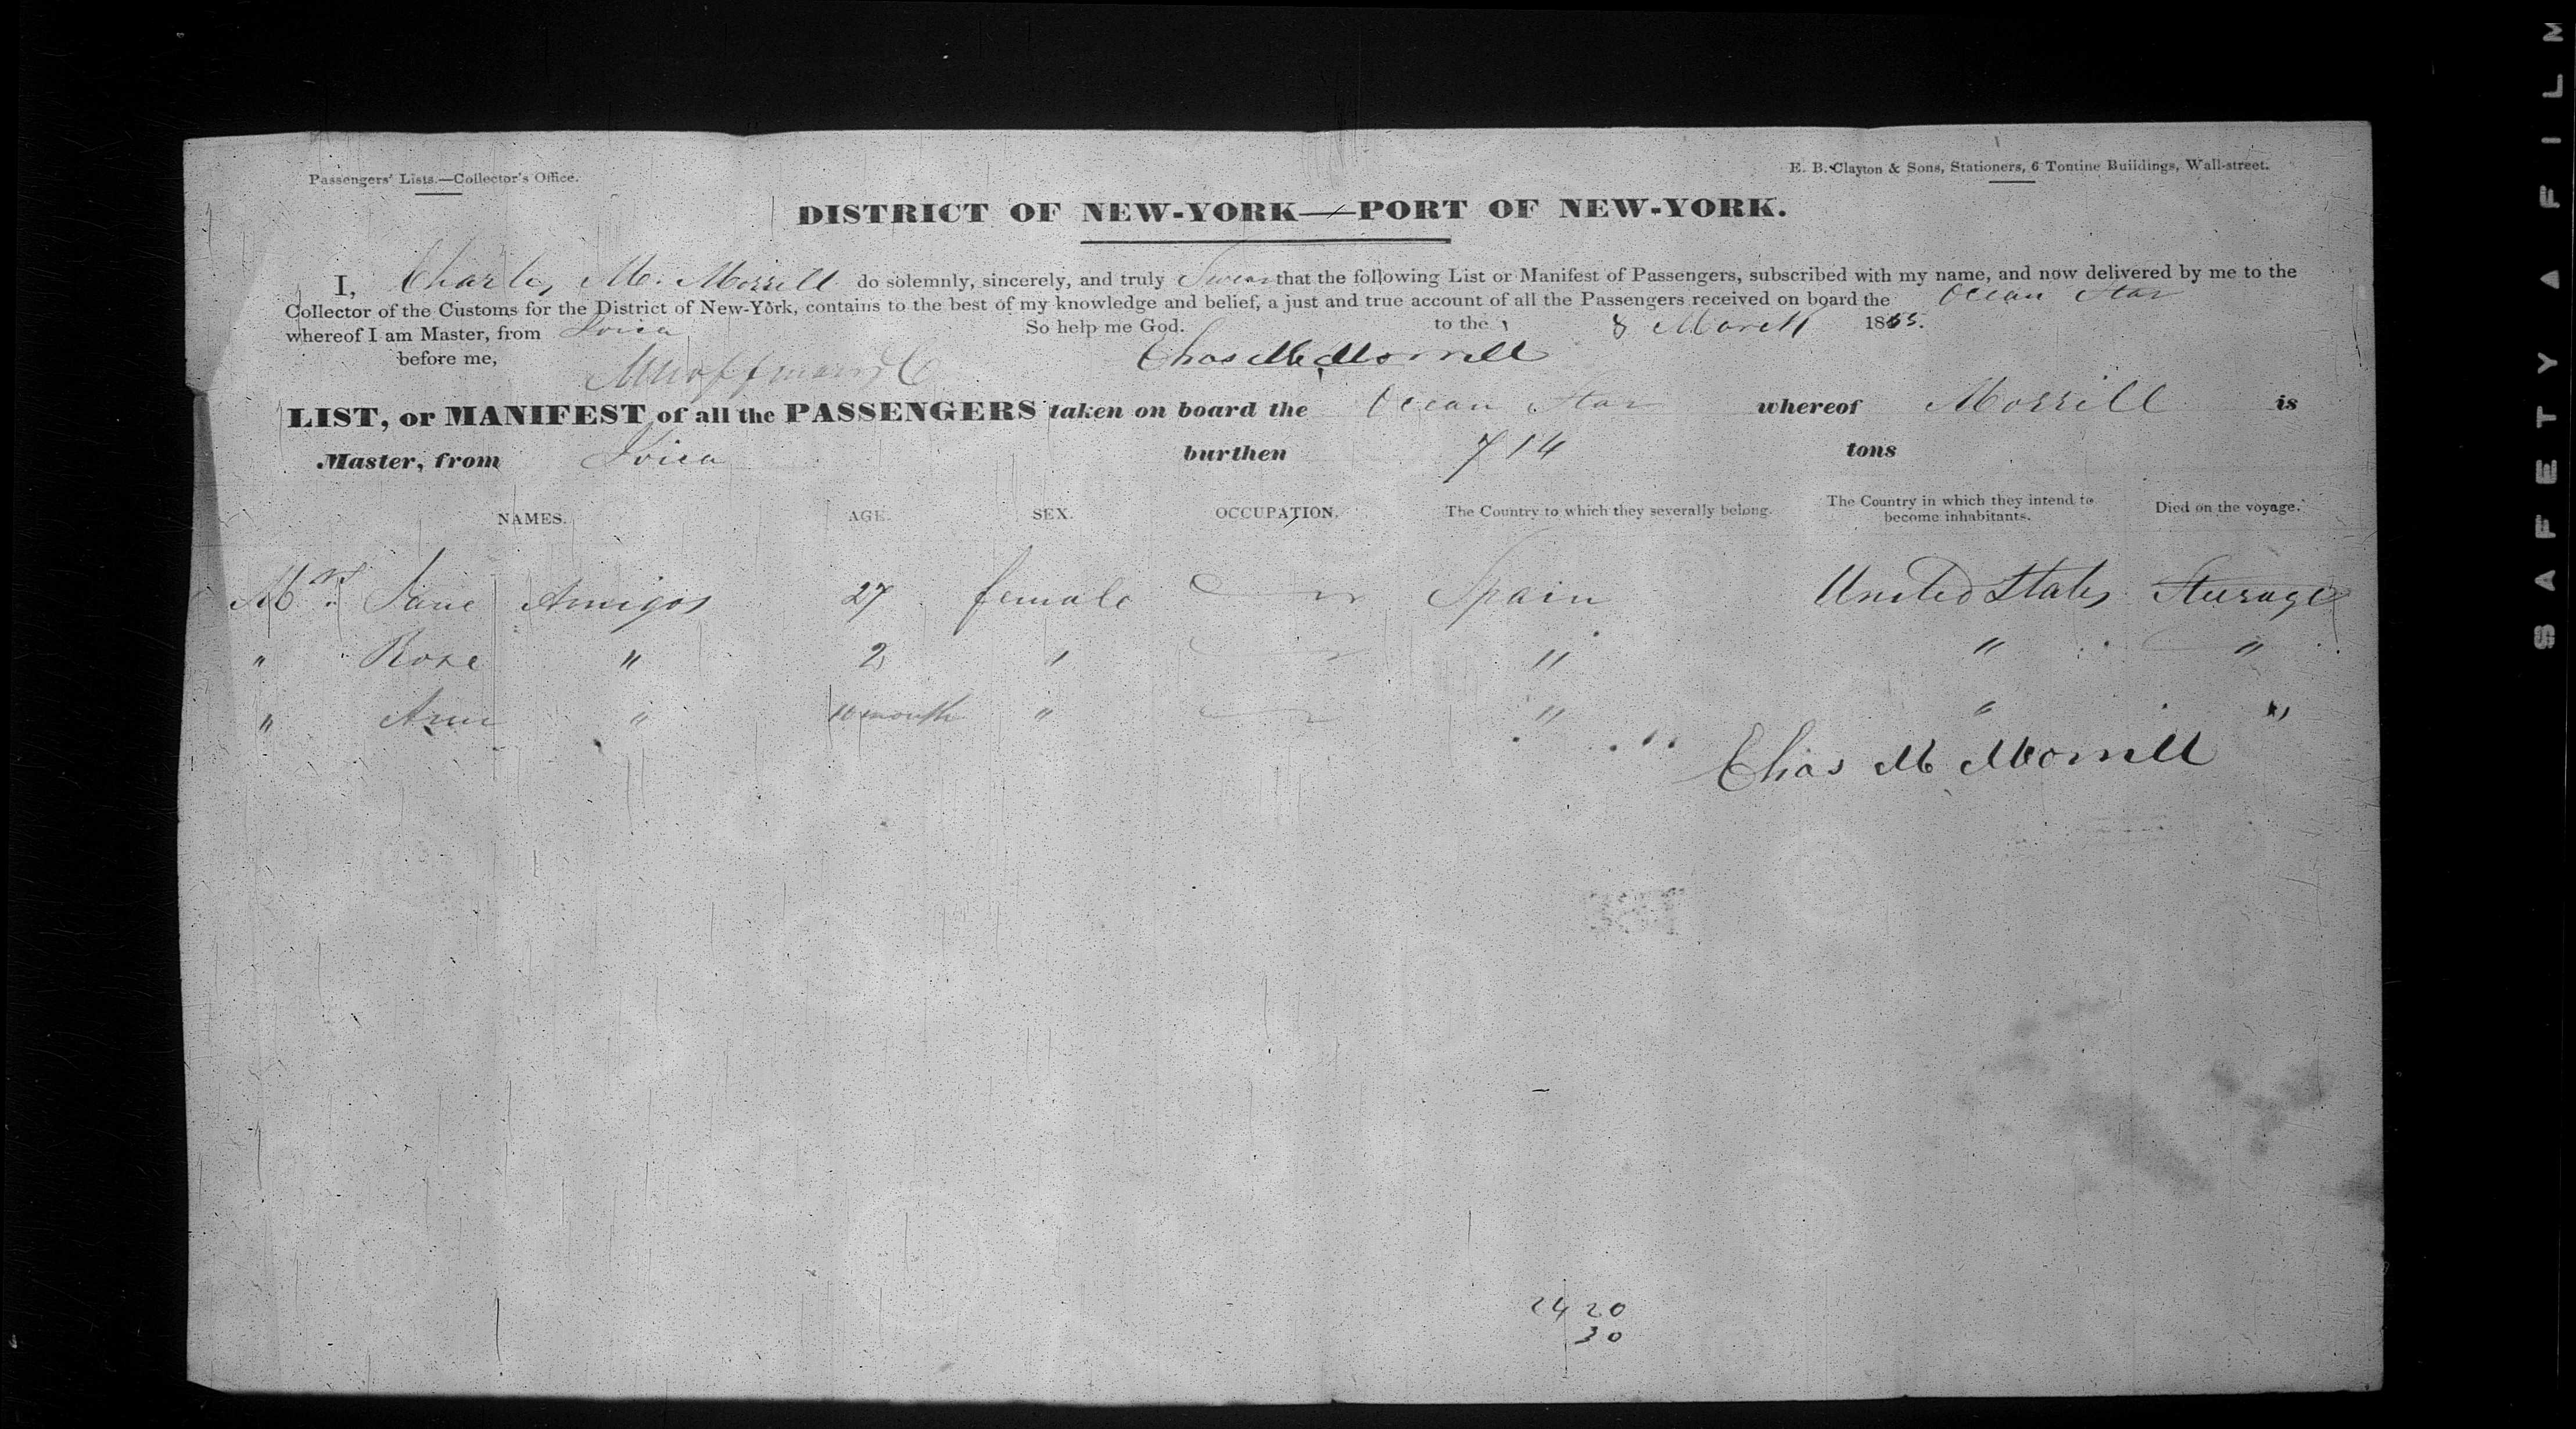 Passengers' Lists.—Collector's Office.
E. B. Clayton & Sons, Stationers, 6 Tontine Buildings, Wall-street.
DISTRICT OF NEW-YORK—PORT OF NEW-YORK.
I, Charles M. Morrill do solemnly, sincerely, and truly Swear that the following List or Manifest of Passengers, subscribed with my name, and now delivered by me to the
Collector of the Customs for the District of New-York, contains to the best of my knowledge and belief, a just and true account of all the Passengers received on board the Ocean Star
whereof I am Master, from Ivica So help me God. to the 8 March 1855.
before me, Chas M Morrill
LIST, or MANIFEST of all the PASSENGERS taken on board the Ocean Star whereof Morrill is
Master, from Ivica burthen 714 tons
NAMES. AGE. SEX. OCCUPATION. The Country to which they severally belong. The Country in which they intend to become inhabitants. Died on the voyage.
Mrs. Jane Amigos 27 female Spain United States Steerage
" Rose " 2 " " " "
" Ann " 10 month " " " "
Chas M Morrill
24 20
30
SAFETY A FILM